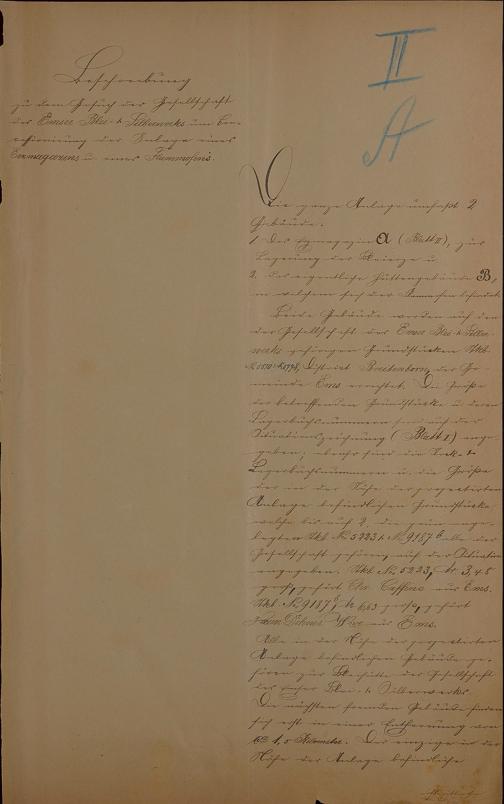 II
A
Beschreibung
zu dem Gesuch der Gesellschaft
des Emser Blei- & Silberwerks um Con-
cessionirung der Anlage eines
Erzmagazins u. eines Flammofens.
Die ganze Anlage umfaßt 2
Gebäude:
1. Das Erzmagazin A (Blatt II), zur
Lagerung der Erze u.
2. das eigentliche Hüttengebäude B,
in welchem sich der Flammofen befindet.
Beide Gebäude werden auf den
der Gesellschaft des Emser Blei- & Silber-
werks gehörigen Grundstücken Stkb.
District Breitenborn, der Ge-
meinde Ems errichtet. Die Größe
der betreffenden Grundstücke u. deren
Lagerbuchsnummern sind auf der
Situationszeichnung (Blatt I) ange-
geben; ebenso sind die Stock- &
Lagerbuchsnummern u. die Größe
der in der Nähe der projectirten
Anlage befindlichen Grundstücke,
welche bis auf 2, die
Stkb. No 5223 & No 9187 b alle der
Gesellschaft gehören, auf der Situation
angegeben. Stkb. No 5223, 3,48
groß, gehört Chr. Caffine aus Ems.
Stkb. No 9187 b, 6,63 groß, gehört
Wwe aus Ems.
Alle in der Nähe der projectirten
Anlage befindlichen Gebäude ge-
hören zur Bleihütte der Gesellschaft
des Emser Blei- & Silberwerks.
Die nächsten fremden Gebäude finden
sich erst in einer Entfernung von
1,5 Kilometer. Das einzige in der
Nähe der Anlage befindliche